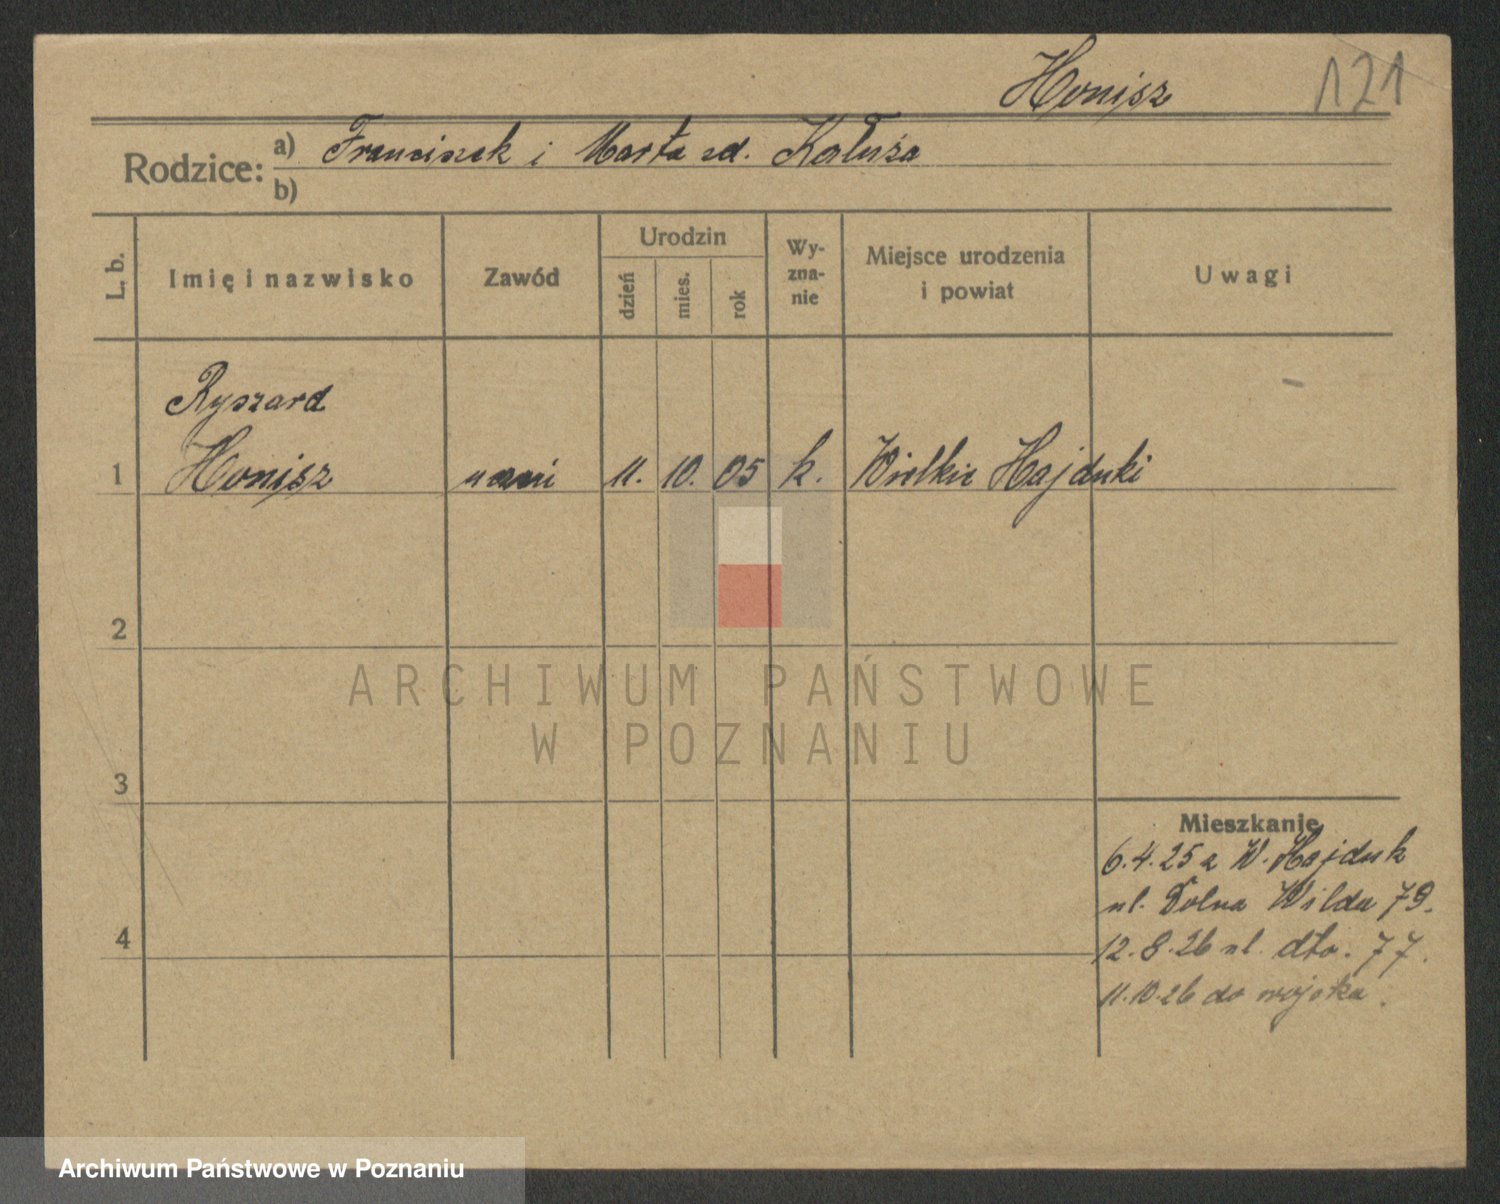 Honisz
121
Rodzice:
a) Franciszek i Marta zd. Kałuża
b)
L. b.
Imię i nazwisko
Zawód
Urodzin
dzień
mies.
rok
Wy-
zna-
nie
Miejsce urodzenia
i powiat
Uwagi
Ryszard
1 Honisz uczeń 11. 10. 05 k. Wielkie Hajduki
2
3
4
ARCHIWUM PAŃSTWOWE
W POZNANIU
Mieszkanie
6.4.25 z W. Hajduk
ul. Dolna Wilda 79.
12.8.26 ul. dto. 77.
11.10.26 do wojska.
Archiwum Państwowe w Poznaniu